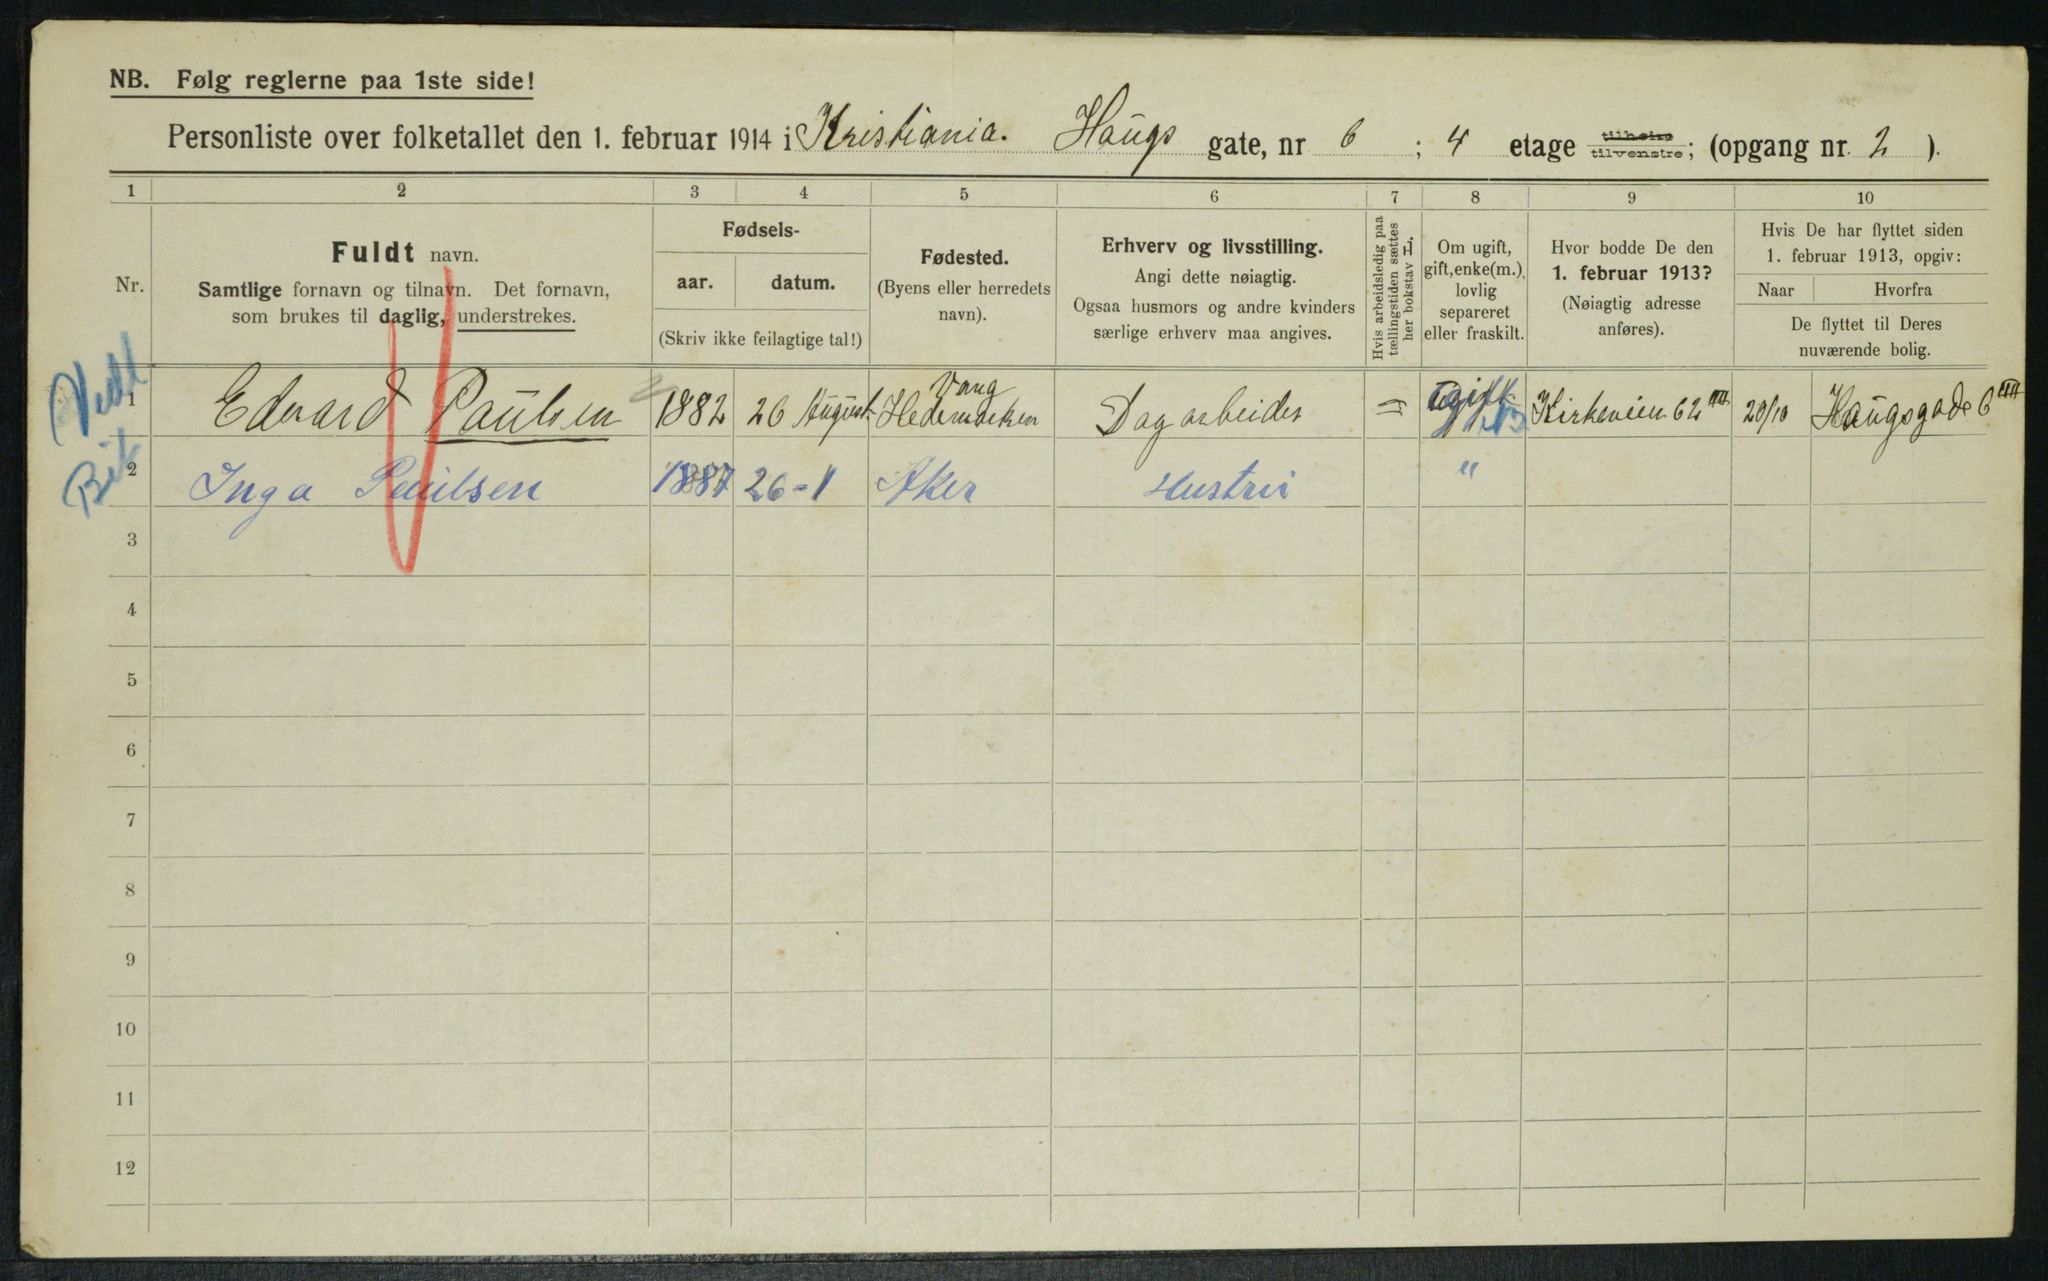 NB. Følg reglerne paa 1ste side!
Personliste over folketallet den 1. februar 1914 i Kristiania. Haugs gate, nr 6 ; 4 etage tilhøire tilvenstre; (opgang nr. 2 ).
1 2 3 4 5 6 7 8 9 10
Nr.
Fuldt navn.
Samtlige fornavn og tilnavn. Det fornavn,
som brukes til daglig, understrekes.
Fødsels-
aar. datum.
(Skriv ikke feilagtige tal!)
Fødested.
(Byens eller herredets
navn).
Erhverv og livsstilling.
Angi dette nøiagtig.
Ogsaa husmors og andre kvinders
særlige erhverv maa angives.
Hvis arbeidsledig paa
tællingstiden sættes
her bokstav L.
Om ugift,
gift, enke(m.),
lovlig
separeret
eller fraskilt.
Hvor bodde De den
1. februar 1913?
(Nøiagtig adresse
anføres).
Hvis De har flyttet siden
1. februar 1913, opgiv:
Naar Hvorfra
De flyttet til Deres
nuværende bolig.
Vang
1 Edvard Paulsen 1882 26 August Hedemarken Dagarbeider = Kirkeveien 62 IIII 20/10 Haugsgade 6 IIII
2 Inga Paulsen 1887 26-1 Aker Hustru "
3
4
5
6
7
8
9
10
11
12